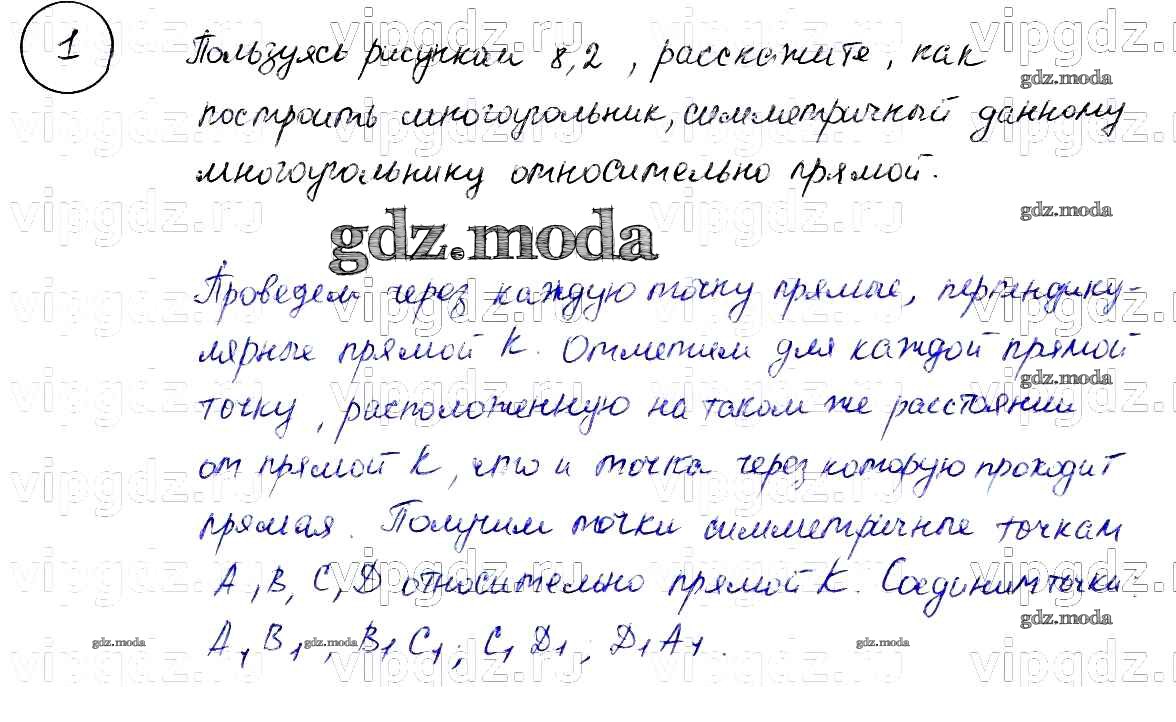 1
Пользуясь рисунком 8,2, расскажите, как
построить многоугольник, симметричный данному
многоугольнику относительно прямой.
gdz.moda
gdz.moda
gdz.moda
Проведем через каждую точку прямые, перпендику-
лярные прямой К. Отметим для каждой прямой
gdz.moda
точку, расположенную на таком же расстоянии
от прямой К, что и точка через которую проходит
прямая. Получим точки симметричные точкам
А, В, С, D относительно прямой К. Соединим точки:
А1В1, В1С1; С1D1; D1А1.
gdz.moda
gdz.moda
gdz.moda
gdz.moda
gdz.moda
vipgdz.ru